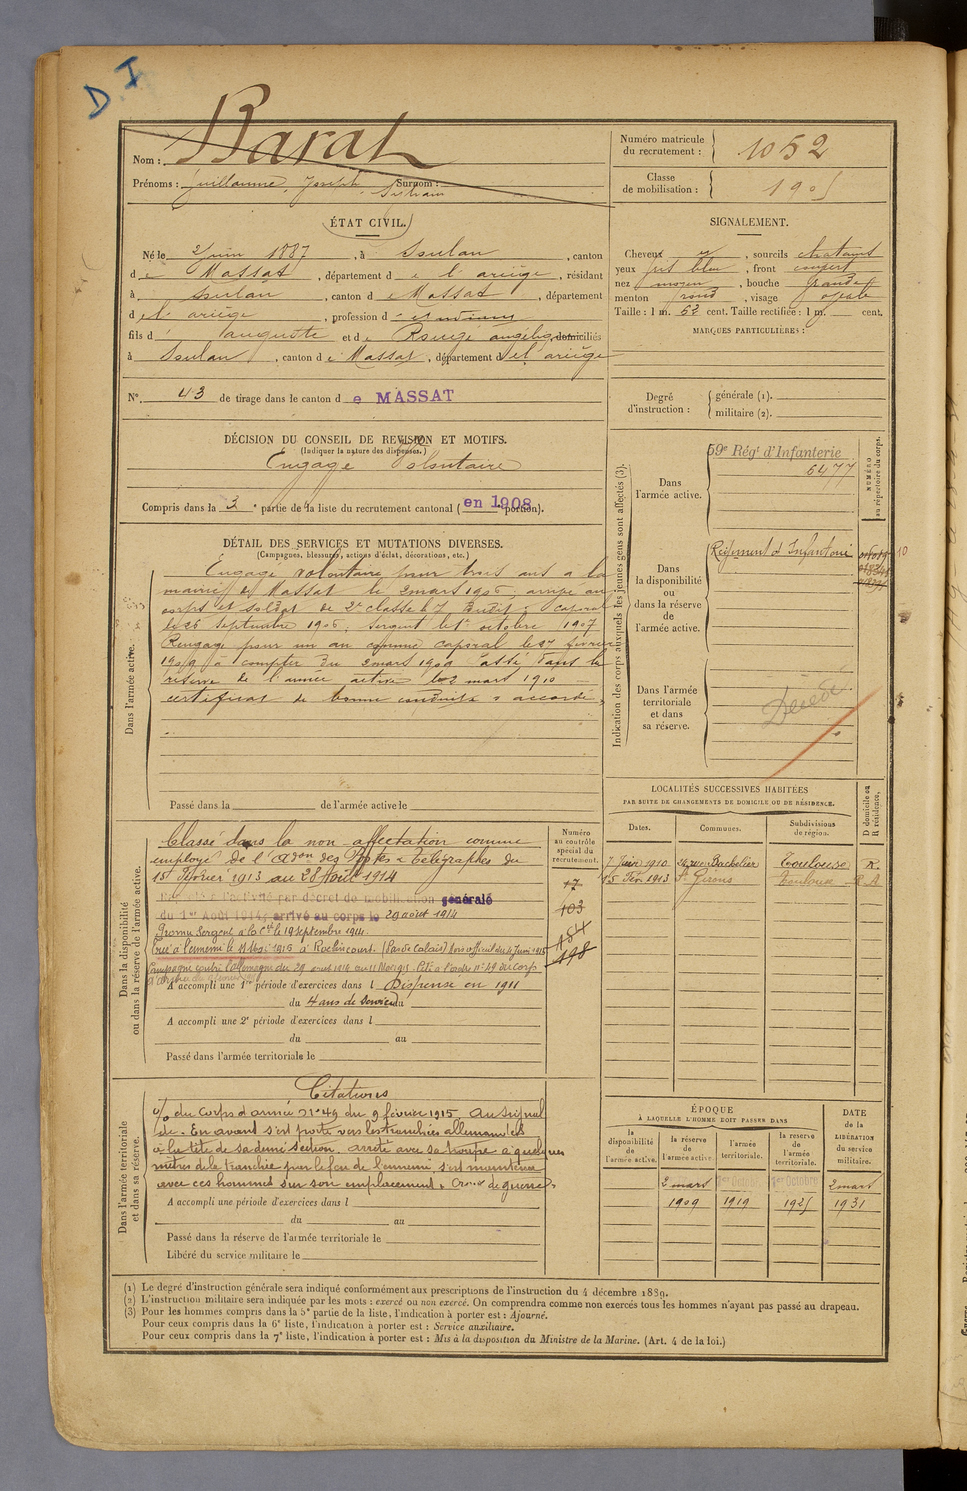 D I
Nom : Barat
Prénoms : Guillaume, Joseph Surnom :
Numéro matricule du recrutement : 1052
Classe de mobilisation :
ÉTAT CIVIL.
Né le 2 juin 1887, à Soulan, canton
de Massat, département de l'ariège, résidant
à Soulan, canton de Massat, département
de l'ariège, profession d'étudiant
fils d'auguste et de Rouge angéliq, domiciliés
à Soulan, canton de Massat, département de l'ariège
SIGNALEMENT.
Cheveux, sourcils chatains
yeux gris bleu, front couvert
nez moyen, bouche grande
menton rond, visage ovale
Taille : 1 m. 62 cent. Taille rectifiée : 1 m. cent.
MARQUES PARTICULIÈRES :
N° 43 de tirage dans le canton de MASSAT
Degré d'instruction : générale (1).
militaire (2).
DÉCISION DU CONSEIL DE REVISION ET MOTIFS.
(Indiquer la nature des dispenses.)
Engagé Volontaire
Compris dans la 3e partie de la liste du recrutement cantonal (en 1908 portion).
DÉTAIL DES SERVICES ET MUTATIONS DIVERSES.
(Campagnes, blessures, actions d'éclat, décorations, etc.)
Dans l'armée active.
Engagé volontaire pour trois ans à la
mairie de Massat le 2 mars 1906, arrivé au
corps et soldat de 2e classe le 7 Dudit, caporal
le 26 Septembre 1906, Sergent le 1er octobre 1907
Rengagé pour un an comme caporal le 27 février
1909 à compter du 2 mars 1909 Passé dans la
réserve de l'armée active le 2 mars 1910
certificat de bonne conduite "accordé"
Passé dans la de l'armée active le
Indication des corps auxquels les jeunes gens sont affectés (3).
NUMÉRO au répertoire du corps.
Dans l'armée active.
59e Régt d'Infanterie
5477
Dans la disponibilité ou dans la réserve de l'armée active.
Régiment d'Infanterie
10
Dans l'armée territoriale et dans sa réserve.
Décédé
LOCALITÉS SUCCESSIVES HABITÉES
PAR SUITE DE CHANGEMENTS DE DOMICILE OU DE RÉSIDENCE.
Dates. Communes. Subdivisions de région. D domicile ou R résidence.
7 Juin 1910 rue Bachelier Toulouse R.
15 Fév. 1913 St Girons Toulouse R A
Dans la disponibilité ou dans la réserve de l'armée active.
Numéro au contrôle spécial du recrutement.
17
103
184
198
Classé dans la non affectation comme
employé de l'Aon des Postes & Télégraphes du
15 Février 1913 au 28 Août 1914
Rappelé à l'activité par décret de mobilisation générale
du 1er Août 1914, arrivé au corps le 29 août 1914
Promu Sergent à la Cie le 19 Septembre 1914.
Tué à l'ennemi le 11 Mai 1915 à Roclincourt. (Pas de Calais) Avis officiel du 4 Juin 1915
Campagne contre l'Allemagne du 29 août 1914 au 11 Mai 1915. Cité à l'ordre n° 49 du corps
A accompli une 1re période d'exercices dans l Dispensé en 1911
du 4 ans de service au
A accompli une 2e période d'exercices dans l
du au
Passé dans l'armée territoriale le
Dans l'armée territoriale et dans sa réserve.
Citations
O/ du Corps d'armée n° 49 du 9 février 1915. Au signal
de "En avant" s'est porté vers les tranchées allemandes
à la tête de sa demi section, arrêté avec sa troupe à quelques
mètres de la tranchée par le feu de l'ennemi, s'est maintenu
avec ces hommes sur son emplacement. Croix de guerre.
A accompli une période d'exercices dans l
du au
Passé dans la réserve de l'armée territoriale le
Libéré du service militaire le
ÉPOQUE
À LAQUELLE L'HOMME DOIT PASSER DANS
la disponibilité de l'armée active. la réserve de l'armée active. l'armée territoriale. la réserve de l'armée territoriale.
DATE de la LIBÉRATION du service militaire.
2 mars 1er Octobre 1er Octobre 2 mars
1909 1919 1925 1931
(1) Le degré d'instruction générale sera indiqué conformément aux prescriptions de l'instruction du 4 décembre 1889.
(2) L'instruction militaire sera indiquée par les mots : exercé ou non exercé. On comprendra comme non exercés tous les hommes n'ayant pas passé au drapeau.
(3) Pour les hommes compris dans la 5e partie de la liste, l'indication à porter est : Ajourné.
Pour ceux compris dans la 6e liste, l'indication à porter est : Service auxiliaire.
Pour ceux compris dans la 7e liste, l'indication à porter est : Mis à la disposition du Ministre de la Marine. (Art. 4 de la loi.)